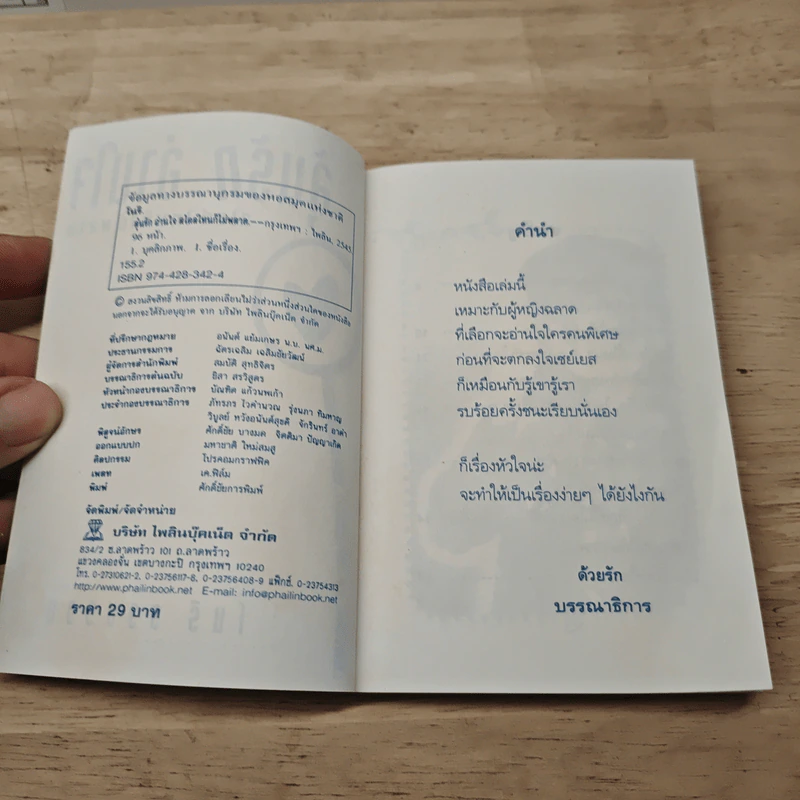 ข้อมูลทางบรรณานุกรมของหอสมุดแห่งชาติ
วันรี.
ลุ้นรัก อ่านใจ สไตล์ไหนก็ไม่พลาด.--กรุงเทพฯ : ไพลิน, 2545
96 หน้า.
1. บุคลิกภาพ. I. ชื่อเรื่อง.
155.2
ISBN 974-428-342-4
© สงวนลิขสิทธิ์ ห้ามการลอกเลียนไม่ว่าส่วนหนึ่งส่วนใดของหนังสือ
นอกจากจะได้รับอนุญาต จาก บริษัท ไพลินบุ๊คเน็ต จำกัด
ที่ปรึกษากฎหมาย อนันต์ แย้มเกษร น.บ. นศ.ม.
ประธานกรรมการ ฉัตรเฉลิม เฉลิมชัยวัฒน์
ผู้จัดการสำนักพิมพ์ สมบัติ สุทธิจิตร
บรรณาธิการต้นฉบับ ธิสา สรวิสูตร
หัวหน้ากองบรรณาธิการ บัณฑิต แก้วนพเก้า
ประจำกองบรรณาธิการ ภัทรภร ไวคำนวณ รุ่งนภา ทิมหาญ
วิบูลย์ หวังอนันต์สุขดี จักรินทร์ อาดำ
พิสูจน์อักษร ศักดิ์ชัย บางมด จิตติมา ปัญญาเกิด
ออกแบบปก มหาชาติ ใหม่สมสู
ศิลปกรรม โปรคอมกราฟฟิค
เพลท เค.ฟิล์ม
พิมพ์ ศักดิ์ชัยการพิมพ์
จัดพิมพ์/จัดจำหน่าย
บริษัท ไพลินบุ๊คเน็ต จำกัด
834/2 ซ.ลาดพร้าว 101 ถ.ลาดพร้าว
แขวงคลองจั่น เขตบางกะปิ กรุงเทพฯ 10240
โทร. 0-27310621-2, 0-23756117-8, 0-23756408-9 แฟ็กซ์. 0-23754313
http://www.phailinbook.net E-mail: info@phailinbook.net
ราคา 29 บาท
คำนำ
หนังสือเล่มนี้
เหมาะกับผู้หญิงฉลาด
ที่เลือกจะอ่านใจใครคนพิเศษ
ก่อนที่จะตกลงใจเซย์เยส
ก็เหมือนกับรู้เขารู้เรา
รบร้อยครั้งชนะเรียบนั่นเอง
ก็เรื่องหัวใจน่ะ
จะทำให้เป็นเรื่องง่ายๆ ได้ยังไงกัน
ด้วยรัก
บรรณาธิการ